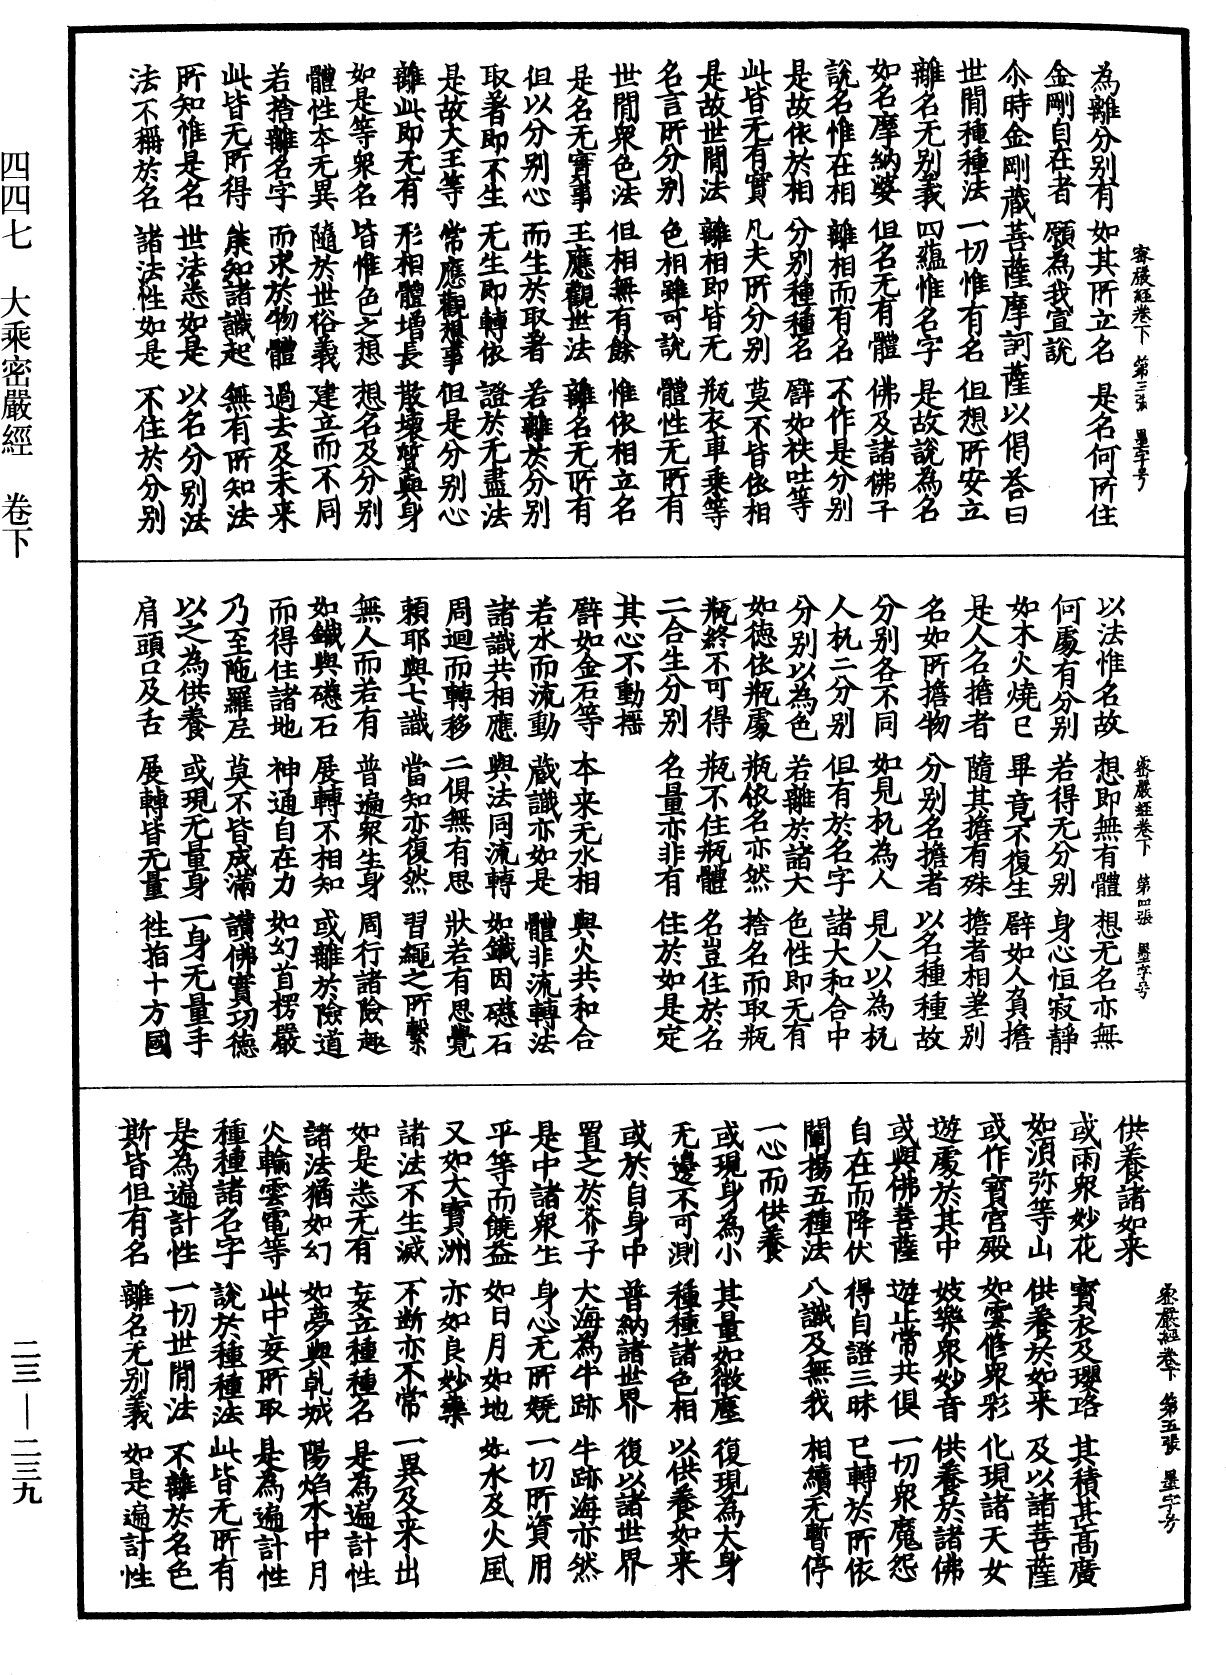 四四七　大乘密嚴經　卷下
二三—二三九
密嚴經卷下　第三張　墨字号
為離分別有　如其所立名　是名何所住
金剛自在者　願為我宣說
尒時金剛藏菩薩摩訶薩以偈荅曰
世間種種法　一切惟有名　但想所安立
離名无別義　四蘊惟名字　是故說為名
如名摩納婆　但名无有體　佛及諸佛子
說名惟在相　離相而有名　不作是分別
是故依於相　分別種種名　譬如袟吐等
此皆无有實　凡夫所分別　莫不皆依相
是故世間法　離相即皆无　瓶衣車乘等
名言所分別　色相雖可說　體性无所有
世間眾色法　但相無有餘　惟依相立名
是名无實事　王應觀世法　離名无所有
但以分別心　而生於取著　若離於分別
取著即不生　无生即轉依　證於无盡法
是故大王等　常應觀想事　但是分別心
離此即无有　形相體增長　散壞質與身
如是等眾名　皆惟色之想　想名及分別
體性本无異　隨於世俗義　建立而不同
若捨離名字　而求於物體　過去及未来
此皆无所得　能知諸識起　無有所知法
所知惟是名　世法悉如是　以名分別法
法不稱於名　諸法性如是　不住於分別
密嚴經卷下　第四張　墨字号
以法惟名故　想即無有體　想无名亦無
何處有分別　若得无分別　身心恒寂靜
如木火燒已　畢竟不復生　譬如人負擔
是人名擔者　隨其擔有殊　擔者相差別
名如所擔物　分別名擔者　以名種種故
分別各不同　如見杌為人　見人以為杌
人杌二分別　但有於名字　諸大和合中
分別以為色　若離於諸大　色性即无有
如德依瓶處　瓶依名亦然　捨名而取瓶
瓶終不可得　瓶不住瓶體　名豈住於名
二合生分別　名量亦非有　住於如是定
其心不動搖
譬如金石等　本来无水相　與火共和合
若水而流動　藏識亦如是　體非流轉法
諸識共相應　與法同流轉　如鐵因礠石
周迴而轉移　二俱無有思　狀若有思覺
賴耶與七識　當知亦復然　習繩之所繫
無人而若有　普遍眾生身　周行諸險趣
如鐵與礠石　展轉不相知　或離於險道
而得住諸地　神通自在力　如幻首楞嚴
乃至陁羅尼　莫不皆成滿　讚佛實功德
以之為供養　或現无量身　一身无量手
肩頭口及舌　展轉皆无量　徃拍十方國
密嚴經卷下　第五張　墨字号
供養諸如来
或雨眾妙花　寶衣及瓔珞　其積甚高廣
如湏弥等山　供養於如来　及以諸菩薩
或作寶宮殿　如雲修眾彩　化現諸天女
遊處於其中　妓樂眾妙音　供養於諸佛
或與佛菩薩　遊止常共俱　一切眾魔怨
自在而降伏　得自證三昧　已轉於所依
闡揚五種法　八識及無我　相續无暫停
一心而供養
或現身為小　其量如微塵　復現為大身
无邊不可測　種種諸色相　以供養如来
或於自身中　普納諸世界　復以諸世界
置之於芥子　大海為牛跡　牛跡海亦然
是中諸眾生　身心无所嬈　一切所資用
平等而饒益　如日月如地　如水及火風
又如大寶洲　亦如良妙藥
諸法不生滅　不断亦不常　一異及来出
如是悉无有　妄立種種名　是為遍計性
諸法猶如幻　如夢與乹城　陽焰水中月
火輪雲電等　此中妄所取　是為遍計性
種種諸名字　說於種種法　此皆无所有
是為遍計性　一切世間法　不離於名色
斯皆但有名　離名无別義　如是遍計性